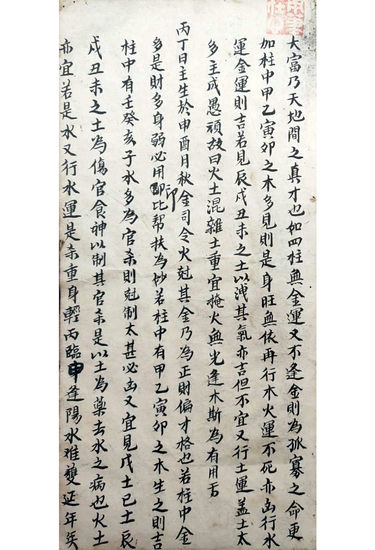 大富乃天地間之真才也如四柱無金運又不逢金則為孤寡之命更
加柱中甲乙寅卯之木多見則是身旺無依再行木火運不死亦凶行水
運金運則吉若見辰戌丑未之土以洩其氣亦吉但不宜又行土運蓋土太
多主成愚頑故曰火土混雜土重宜掩火無光逢木斯為有用
丙丁日主生於申酉月秋金司令火尅其金乃為正財偏才格也若柱中金
多是財多身弱必用印比幫扶為妙若柱中有甲乙寅卯之木生之則吉
柱中有壬癸亥子水多為官杀則尅制太甚必凶又宜見戊土己土辰
戌丑未之土為傷官食神以制其官杀是以土為藥去水之病也火土
亦宜若是水又行水運是杀重身輕丙臨申逢陽水难變延年矣